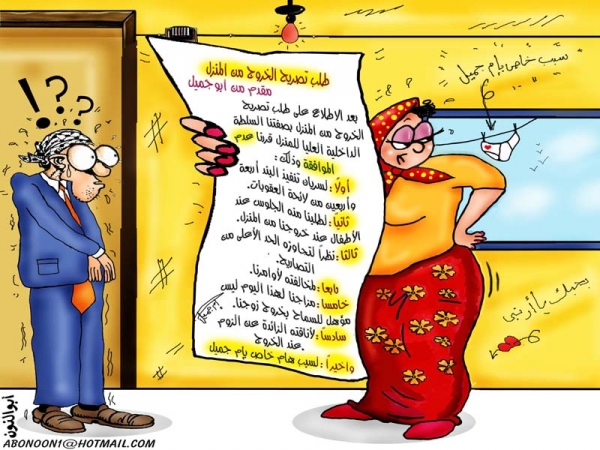 طلب تصريح الخروج من المنزل
مقدم من ابو جميل
بعد الاطلاع على طلب تصريح
الخروج من المنزل بصفتنا السلطة
الداخلية العليا للمنزل قررنا عدم
الموافقة وذلك:
أولاً: لسريان تنفيذ البند أربعة
وأربعين من لائحة العقوبات.
ثانياً: لطلبنا منه الجلوس عند
الأطفال عند خروجنا من المنزل.
ثالثاً: نظراً لتجاوزه الحد الأعلى من
التصاريح.
رابعاً: لمخالفته لأوامرنا.
خامساً: مزاجنا لهذا اليوم ليس
مؤهل للسماح بخروج زوجنا.
سادساً: لأناقته الزائدة عن اللزوم
عند الخروج
واخيراً: لسبب هام خاص بإم جميل
سبب خاص بإم جميل
بحبك يا أردني
!؟؟
ابوالنون
ABONOON1@HOTMAIL.COM